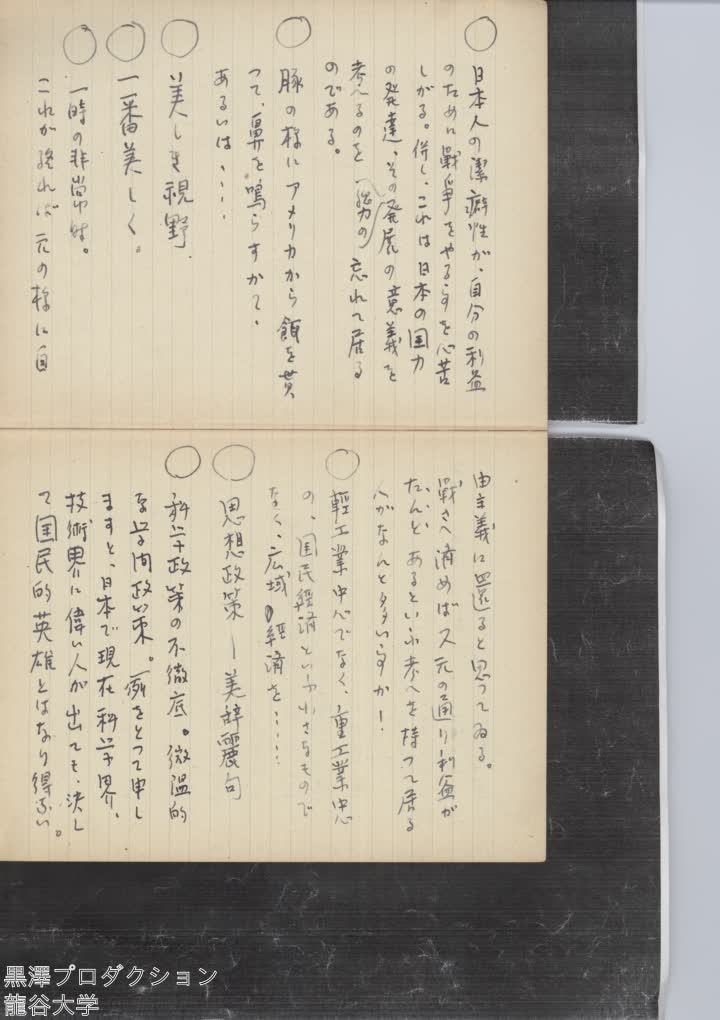 ○ 日本人の潔癖性が、自分の利益
のために戰爭をやる事を心苦
しがる。併し、これは日本の国力
の発達、その発展の意義を
考へるのを 忘れて居る
のである。
○ 豚の様にアメリカから餌を貰
つて、鼻を鳴らすかて、
あるいは、‥‥
○ 美しき視野.
○ 一番美しく。
○ 一時の非常時。
これが終れば元の様に自
由主義に還ると思つてゐる。
戰さへ済めば又元の通り利益が
たんとあるといふ考へを持つて居る
人がなんと多い事か!
○ 輕工業中心でなく、重工業中心
の、国民経済といふ小さなもので
なく、広域経済を‥‥‥
○ 思想政策―美辞麗句
○ 科学政策の不徹底。微温的
な学問政策。例をとつて申し
ますと、日本で現在科学界、
技術界に偉い人が出ても、決し
て国民的英雄とはなり得ない。
黒澤プロダクション
龍谷大学